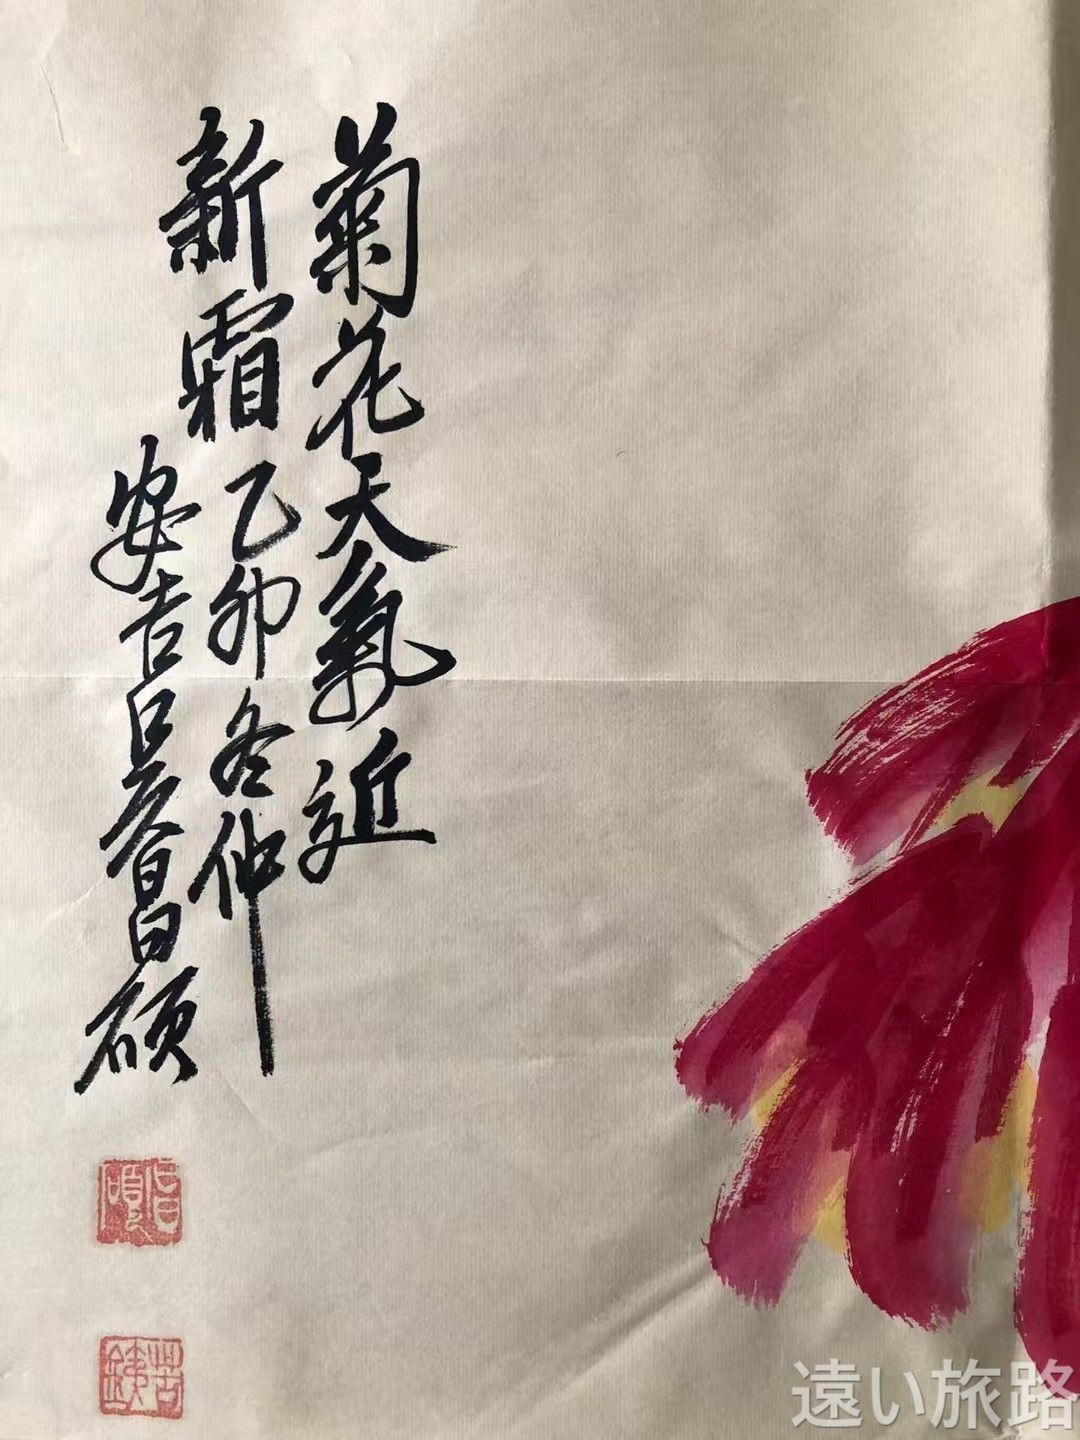 菊花天氣近
新霜乙卯冬仲
安吉吳昌碩
昌碩
苦鐵
遠い旅路